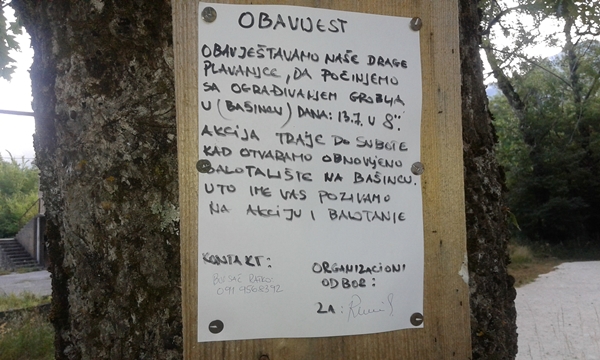 OBAVIJEST
OBAVJEŠTAVAMO NAŠE DRAGE
PLAVANJCE, DA POČINJEMO
SA OGRAĐIVANJEM GROBLJA
U (BAŠINCU) DANA: 13.7. U 8"
AKCIJA TRAJE DO SUBOTE
KAD OTVARAMO OBNOVJENO
BALOTALIŠTE NA BAŠINCU.
U TO IME VAS POZIVAMO
NA AKCIJU I BALOTANJE
KONTAKT:
ORGANIZACIONI
ODBOR:
ZA: